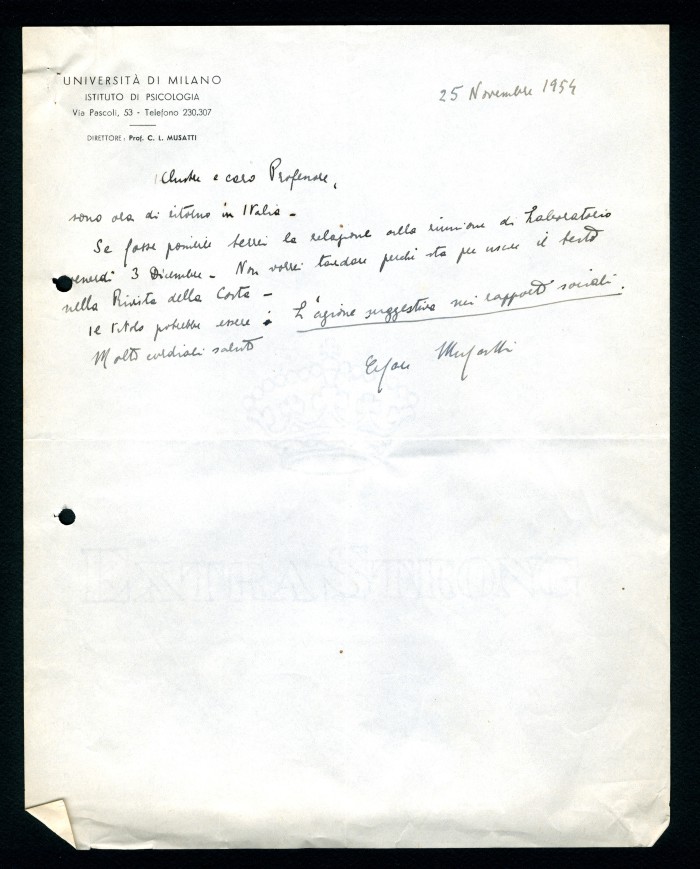 UNIVERSITÀ DI MILANO
ISTITUTO DI PSICOLOGIA
Via Pascoli, 53 - Telefono 230.307
DIRETTORE: Prof. C. L. MUSATTI
25 Novembre 1954
Illustre e caro Professore,
sono ora di ritorno in Italia -
Se fosse possibile terrei la relazione alla riunione di Laboratorio
venerdì 3 Dicembre - Non vorrei tardare perché sta per uscire il testo
nella Rivista della Costa -
Il titolo potrebbe essere: L'azione suggestiva nei rapporti sociali.
Molti cordiali saluti
Cesare Musatti